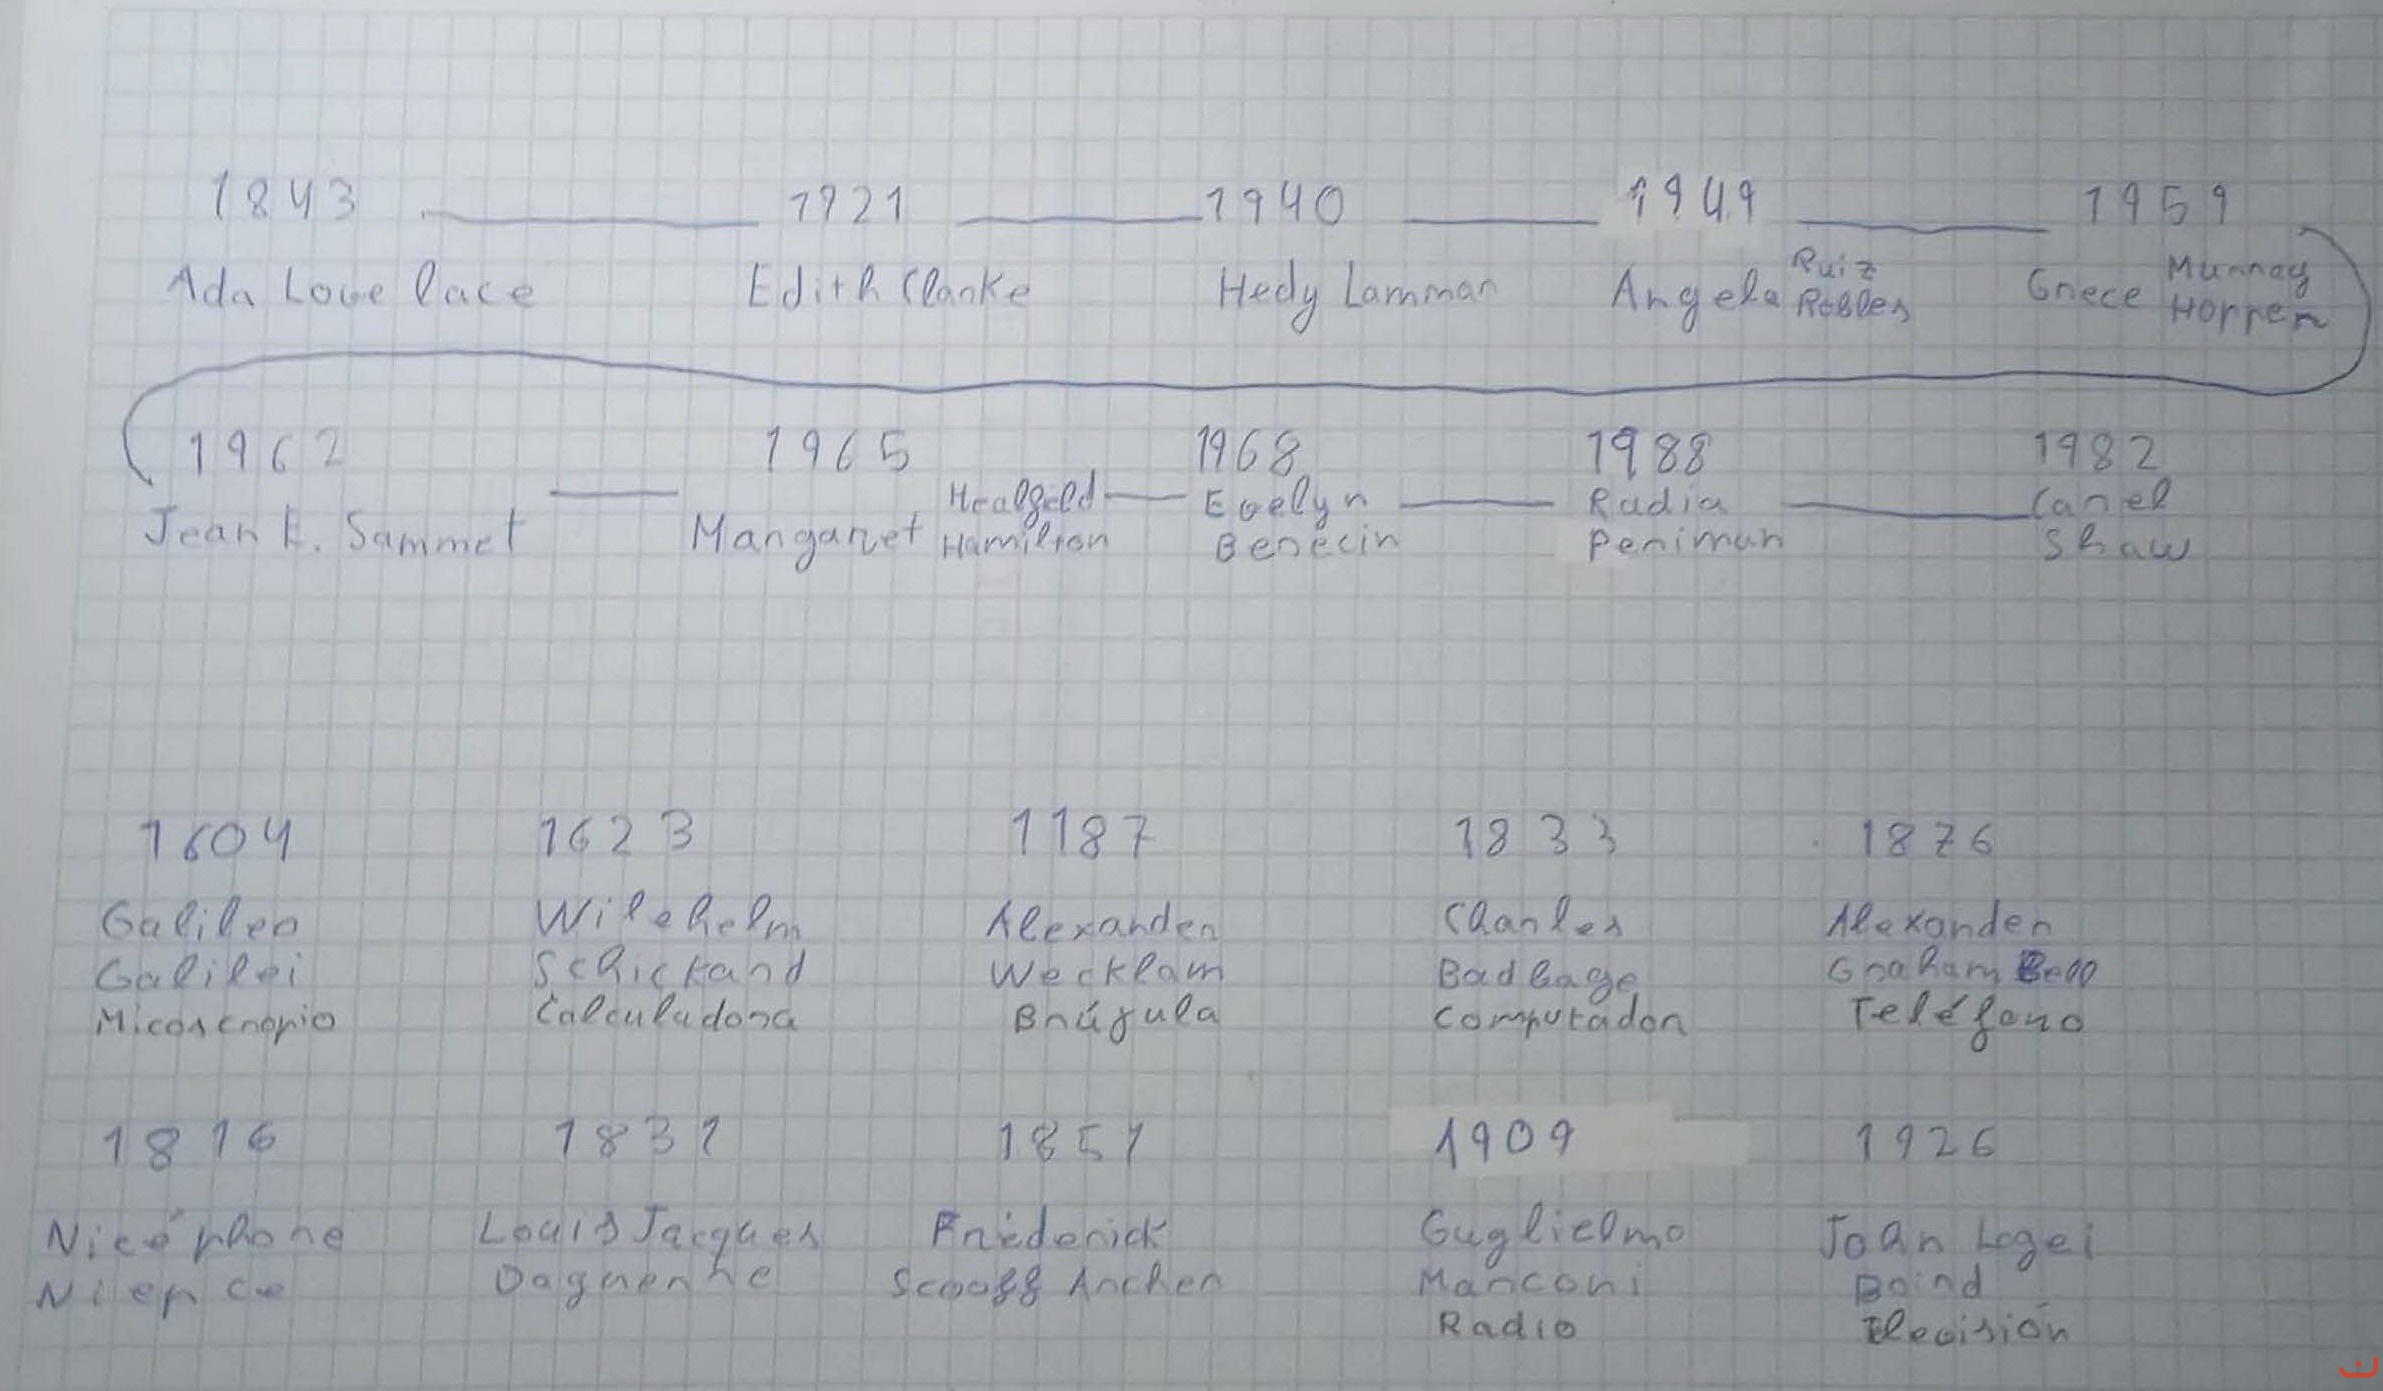 1843 1921 1940 1949 1959
Ada Lovelace Edith Clarke Hedy Lammar Angela Ruiz Robles Grece Murray Hopper
1962 1965 1968 1988 1982
Jean E. Sammet Margaret Healfield Hamilton Evelyn Berecin Radia Periman Carel Shaw
1604 1623 1187 1833 1876
Galileo Wilehelm Alexander Charles Alexander
Galilei Schickard Wecklam Badbage Graham Bell
Calculadora Brújula Computador Teléfono
1816 1831 1851 1909 1926
Nicéphore Louis Jacques Frederick Guglielmo
Niepce Daguerre Scooff Archer Marconi Baird
Radio